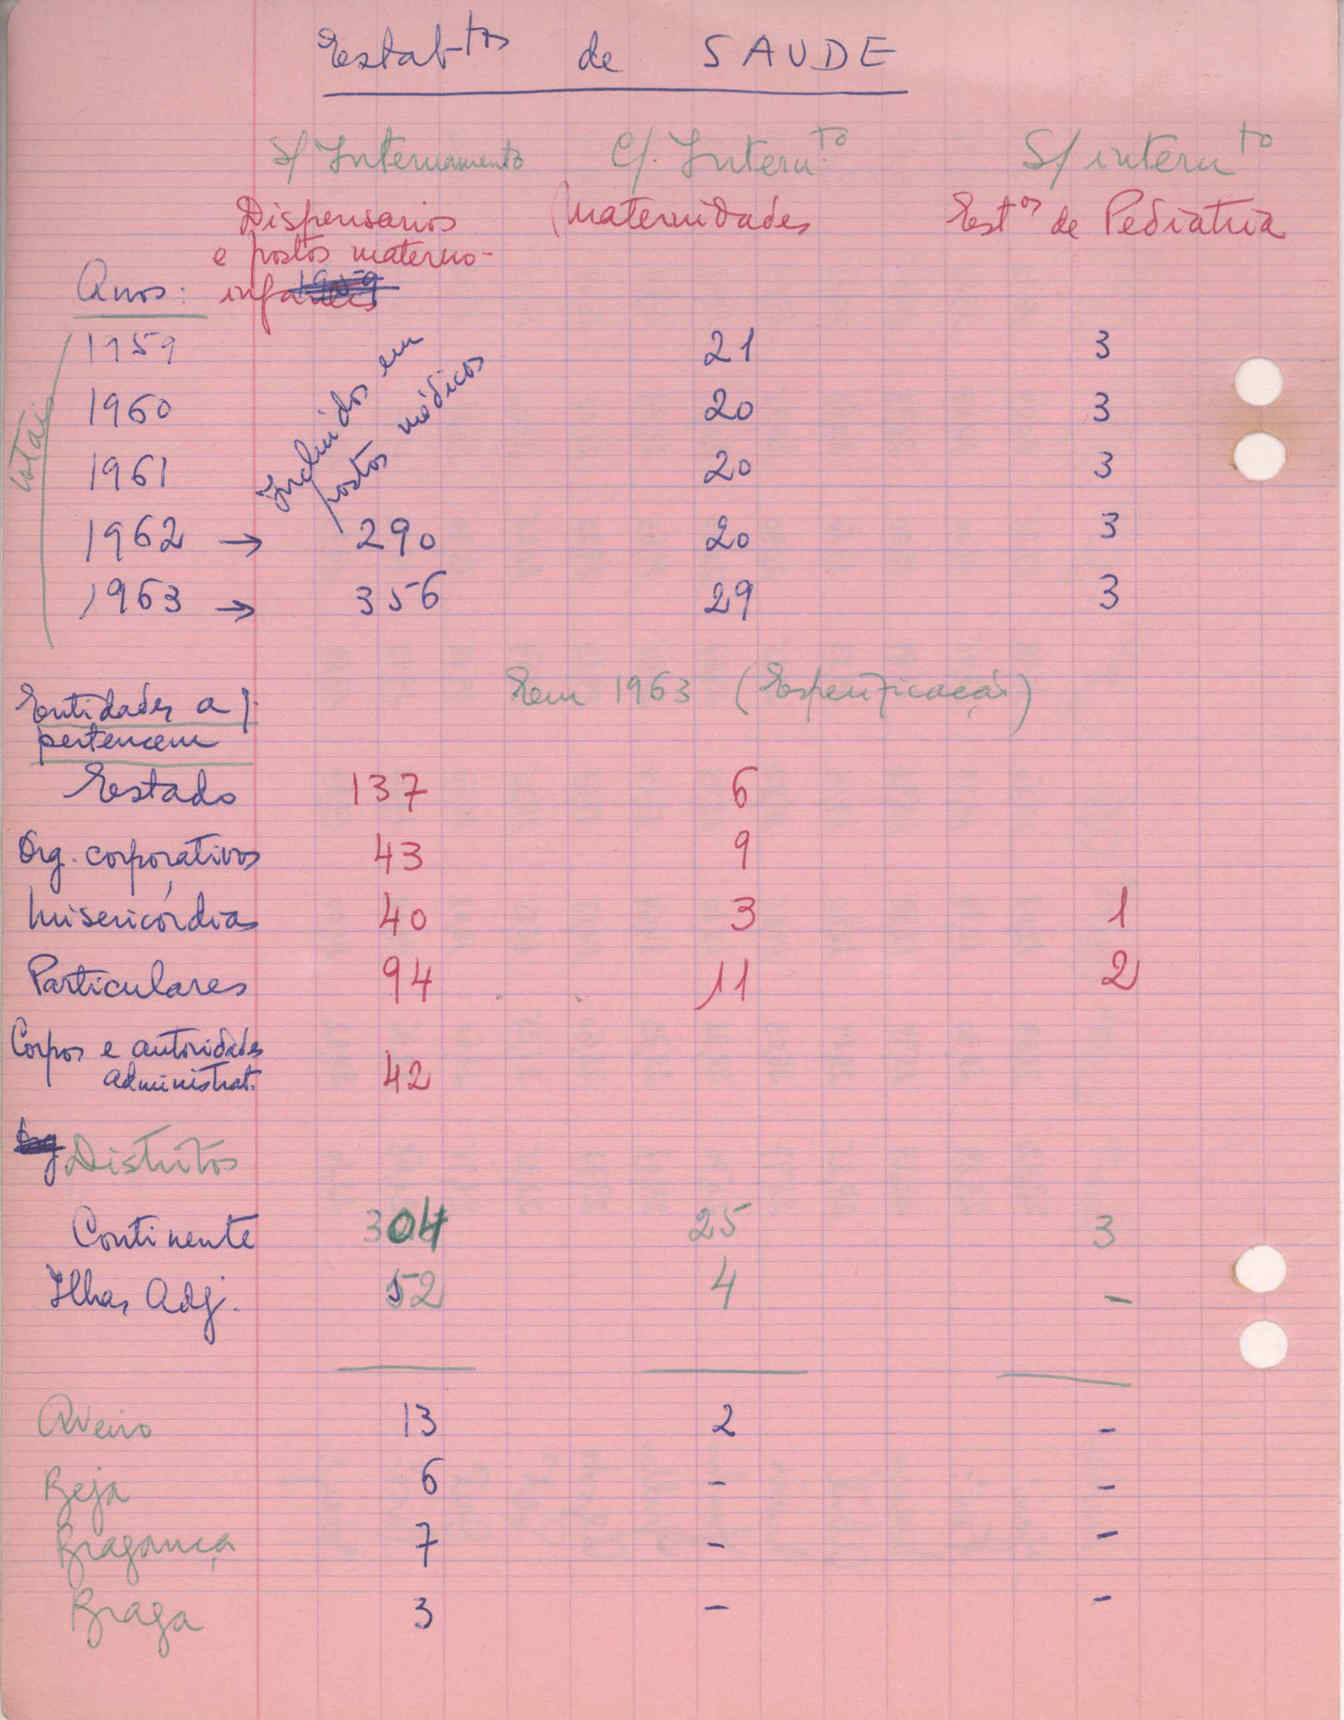 Estabtos de SAUDE
S/ Internamento C/. Internto. S/ internto
Dispensarios Maternidades Estos de Pediatria
e postos materno-
Anos: infantis
1959 21 3
1960 20 3
1961 20 3
1962 → 290 20 3
1963 → 356 29 3
Incluidos em
postos médicos
totais
Em 1963 (Especificação)
Entidades a q.
pertencem
Estado 137 6
Org. corporativos 43 9
Misericórdias 40 3 1
Particulares 94 11 2
Corpos e autoridades
administrat. 42
Distritos
Continente 304 25 3
Ilhas Adj. 52 4 -
Aveiro 13 2 -
Beja 6 - -
Bragança 7 - -
Braga 3 - -